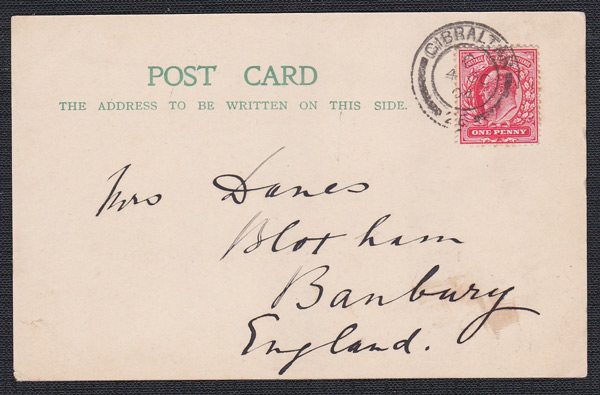 GIBRALTA
POST CARD
THE ADDRESS TO BE WRITTEN ON THIS SIDE.
ONE PENNY
Mrs Danes
Bloxham
Banbury
England.